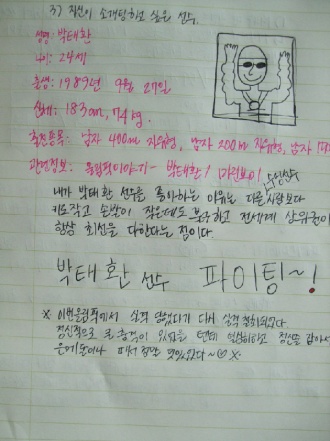 3) 자신이 소개하고 싶은 선수.
성명: 박태환
나이: 24세
출생: 1989년 9월 27일
신체: 183cm, 74kg.
출전종목: 남자 400m 자유형, 남자 200m 자유형, 남자
관련정보: 올림픽이야기-박태환!
내가 박태환 선수를 좋아하는 이유는 다른 사람보다
키도작고 손발이 작은데도 불구하고 전세계 상위권이
항상 최선을 다한다는 점이다.
박태환 선수 파이팅~!
※ 이번올림픽에서 실격 당했다가 다시 실격 철회되었다
정신적으로 큰 충격이 있었을 텐데 정신을